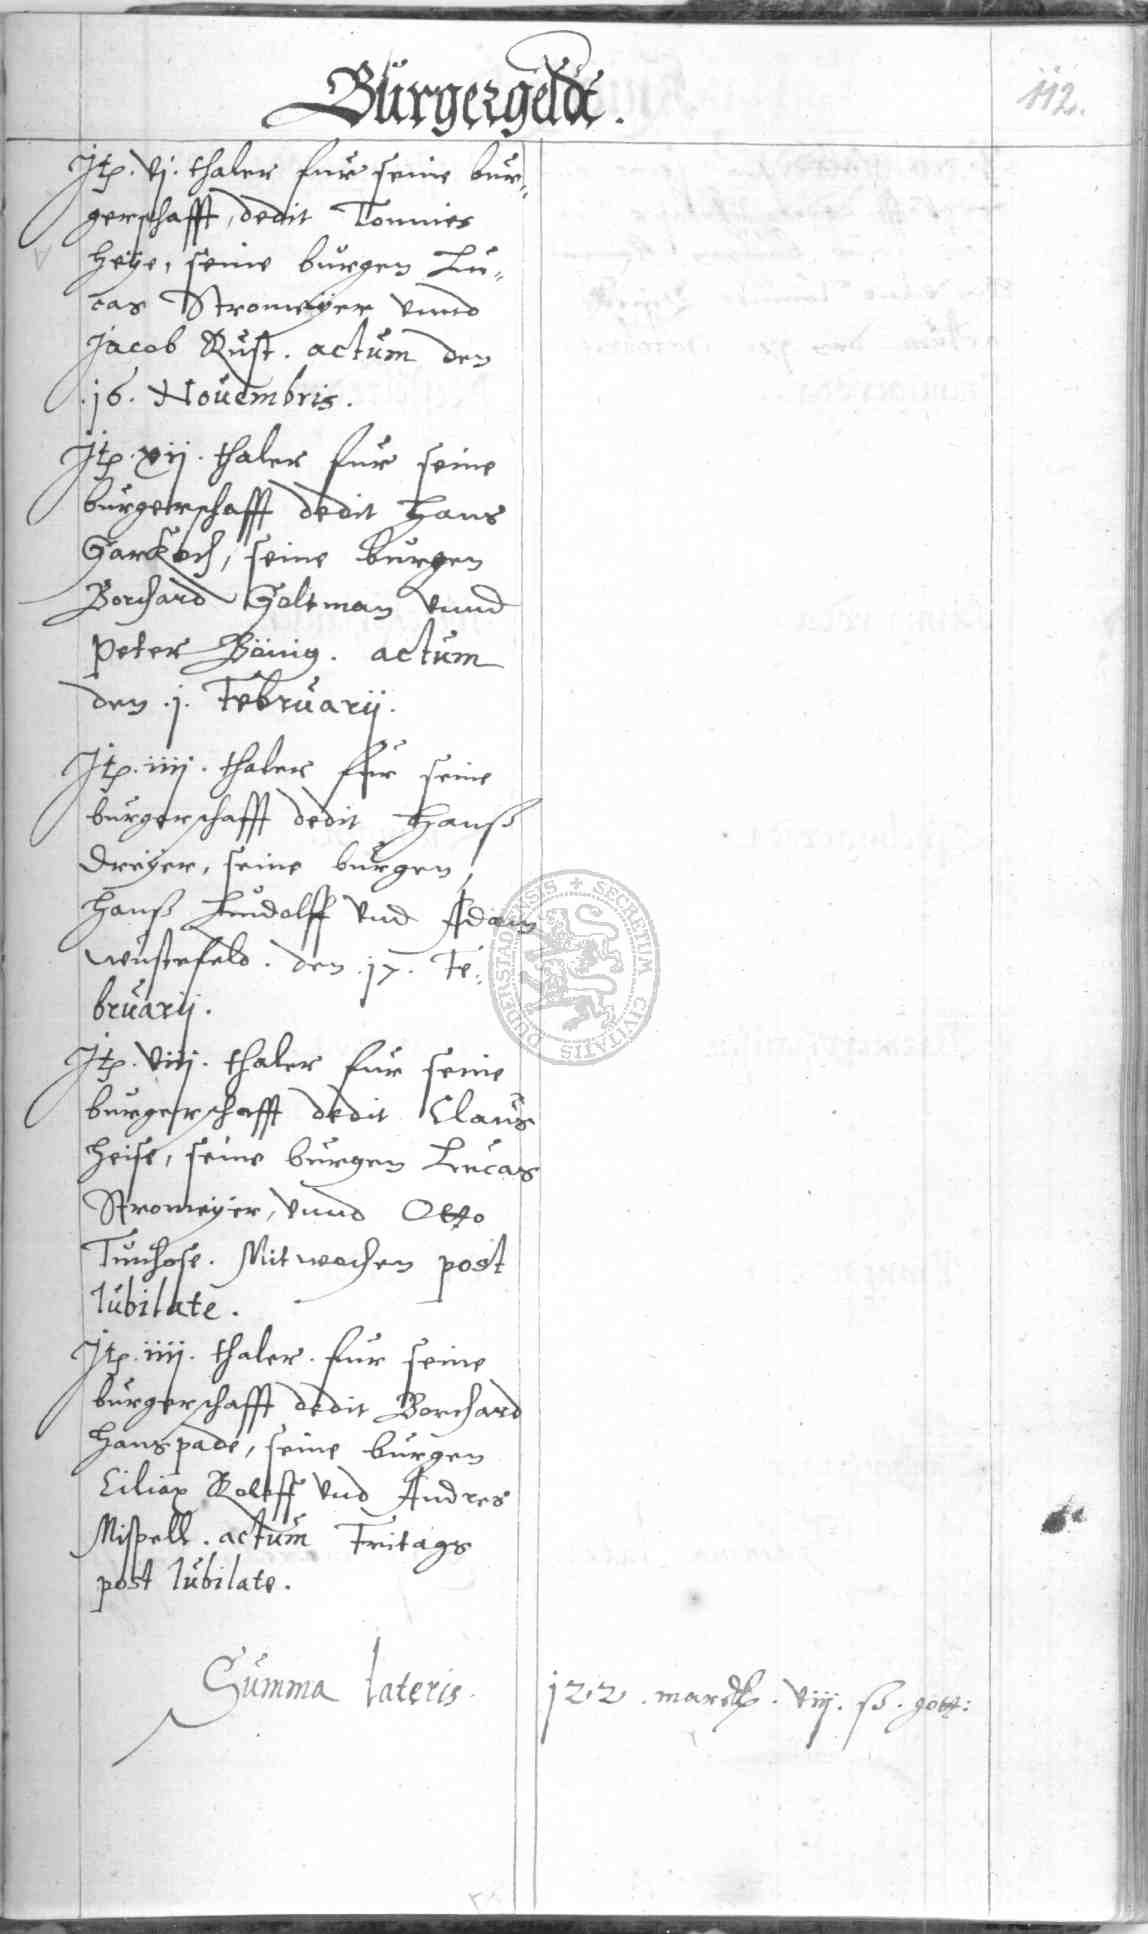 Bürgergeldt.
112.
Jtp. vj. thaler fur seine bur-
gerschafft, dedit Tonnies
Heÿe, seine burgen Lu-
cas Stromeÿer vnnd
Jacob Rust. actum den
.16. Nouembris.
Jtp. xij. thaler fur seine
burgerschafft dedit Hans
Garkoch, seine burgen
Borchard Goltman vnnd
Peter Bönig. actum
den .j. Februarij.
Jtp. iiij. thaler fur seine
burgerschafft dedit Hanß
Dreÿer, seine burgen,
Hanß Ludolff vnd Adam
Wustefeld. den .17. Fe-
bruarij.
Jtp. viij. thaler fur seine
burgerschafft dedit Claus
Heise, seine burgen Lucas
Stromeÿer, vnnd Otto
Tunhose. Mitwochen post
Iubilate.
Jtp. iiij. thaler. fur seine
burgerschafft dedit Borchard
Hanspade, seine burgen
Ciliax Roloff vnd Andres
Mispell. actum Fritags
post Iubilate.
Summa lateris. 122. marck. viij. ß. gott:
DUDERSTADENSIS + SECRETUM CIVITATIS